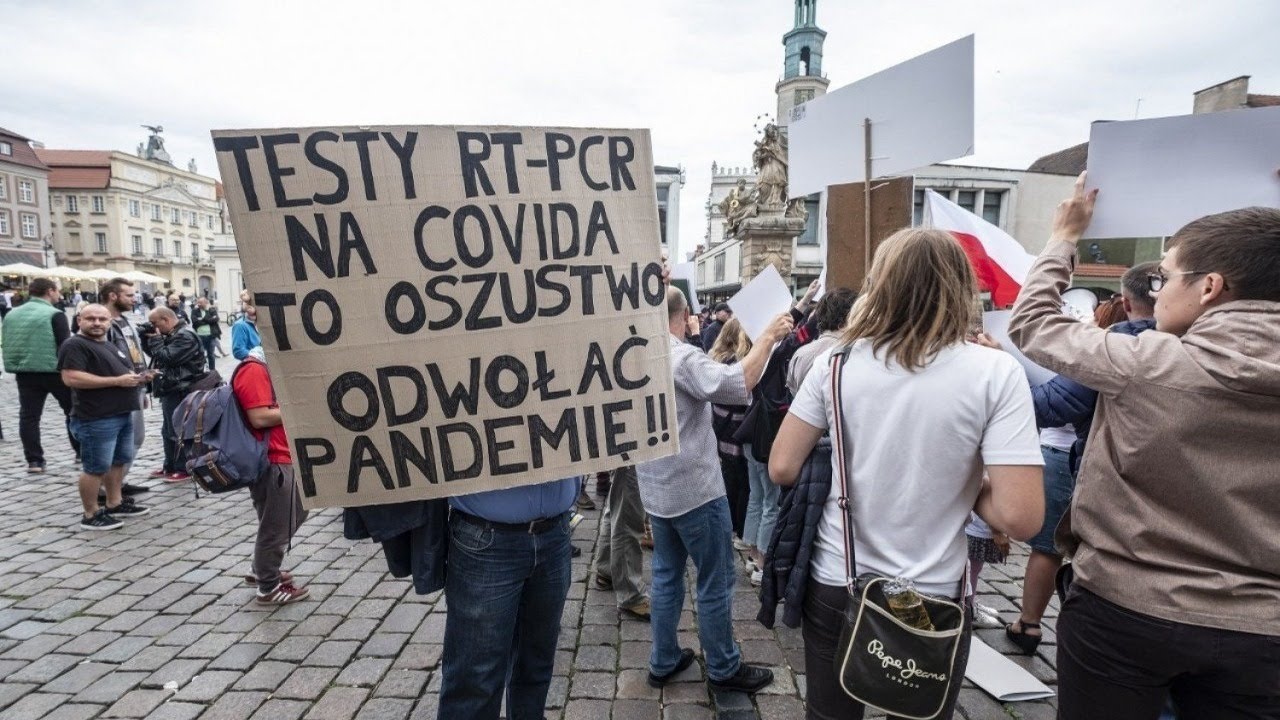 TESTY RT-PCR
NA COVIDA
TO OSZUSTWO
ODWOŁAĆ
PANDEMIĘ!!
Pepe Jeans
LONDON